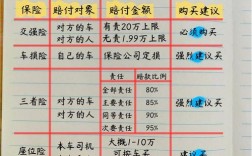 保险 赔付对象 赔付金额 购买建议
交强险 对方的车 对方的人 有责20万上限 无责1.99万上限 必须购买
车损险 自己的车 保险公司定损 强烈建议买
三者险 对方的车 对方的人 强烈建议买
责任 赔款比例
全部责任 80%
主要责任 85%
同等责任 90%
次要责任 95%
座位险 本车司机 大概1-10万 建议买